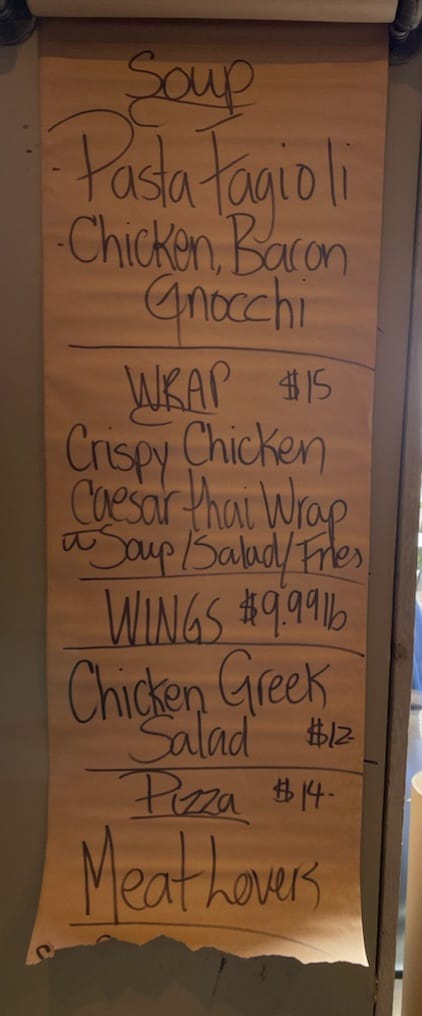 Soup
- Pasta Fagioli
- Chicken, Bacon
Gnocchi
WRAP $15
Crispy Chicken
Caesar thai Wrap
w Soup/Salad/Fries
WINGS $9.99 lb
Chicken Greek
Salad $12-
Pizza $14-
Meat Lovers